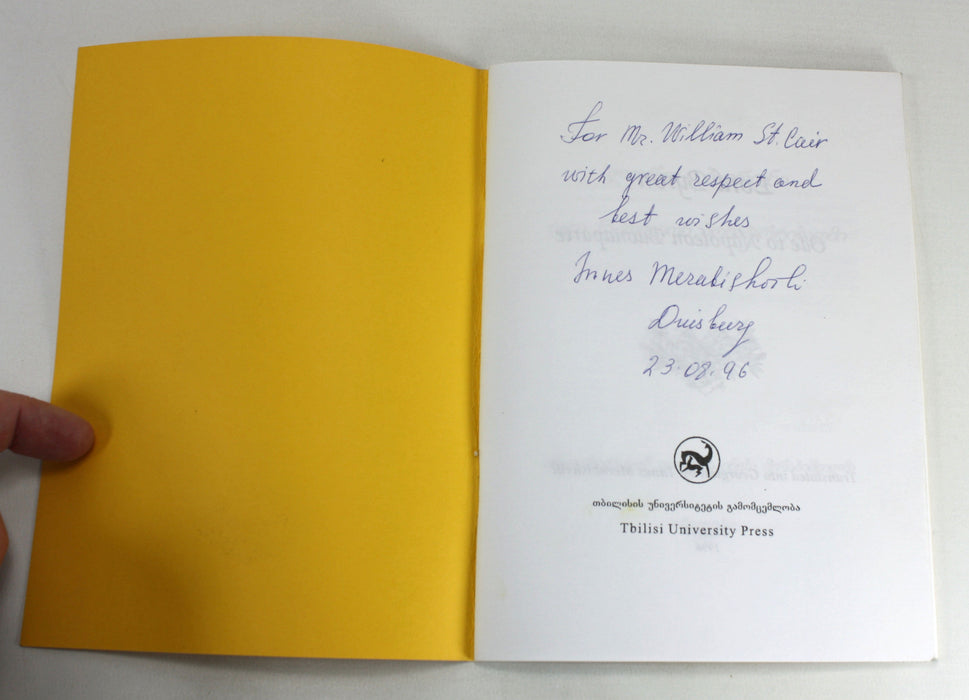 For Mr. William St. Cair
with great respect and
best wishes
Innes Merabishvili
Duisburg
23.08.96
თბილისის უნივერსიტეტის გამომცემლობა
Tbilisi University Press